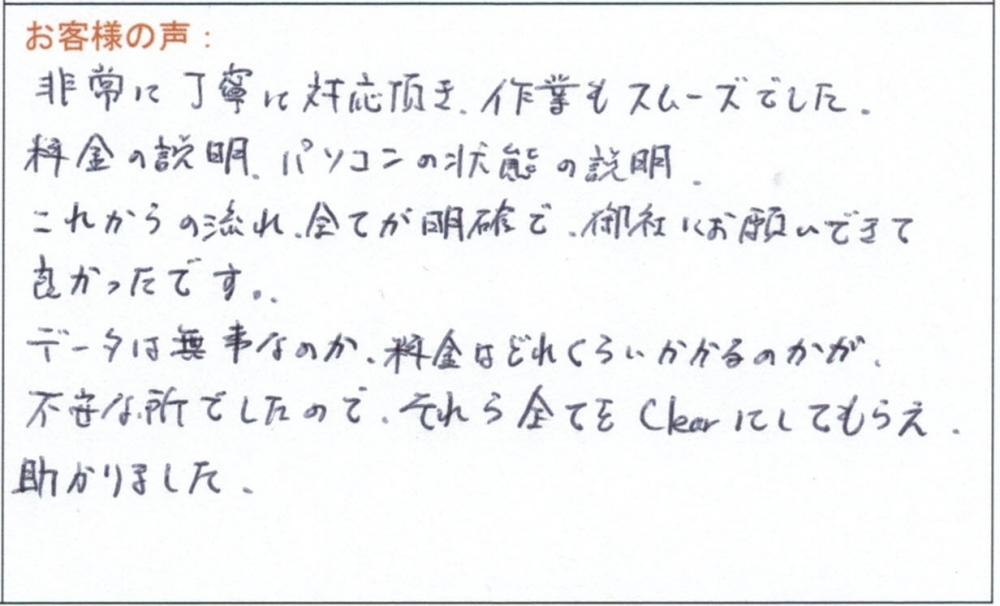 お客様の声:
非常に丁寧に対応頂き、作業もスムーズでした。
料金の説明、パソコンの状態の説明、
これからの流れ、全てが明確で、御社にお願いできて
良かったです。
データは無事なのか、料金はどれくらいかかるのかが、
不安な所でしたので、それら全てをClearにしてもらえ、
助かりました。